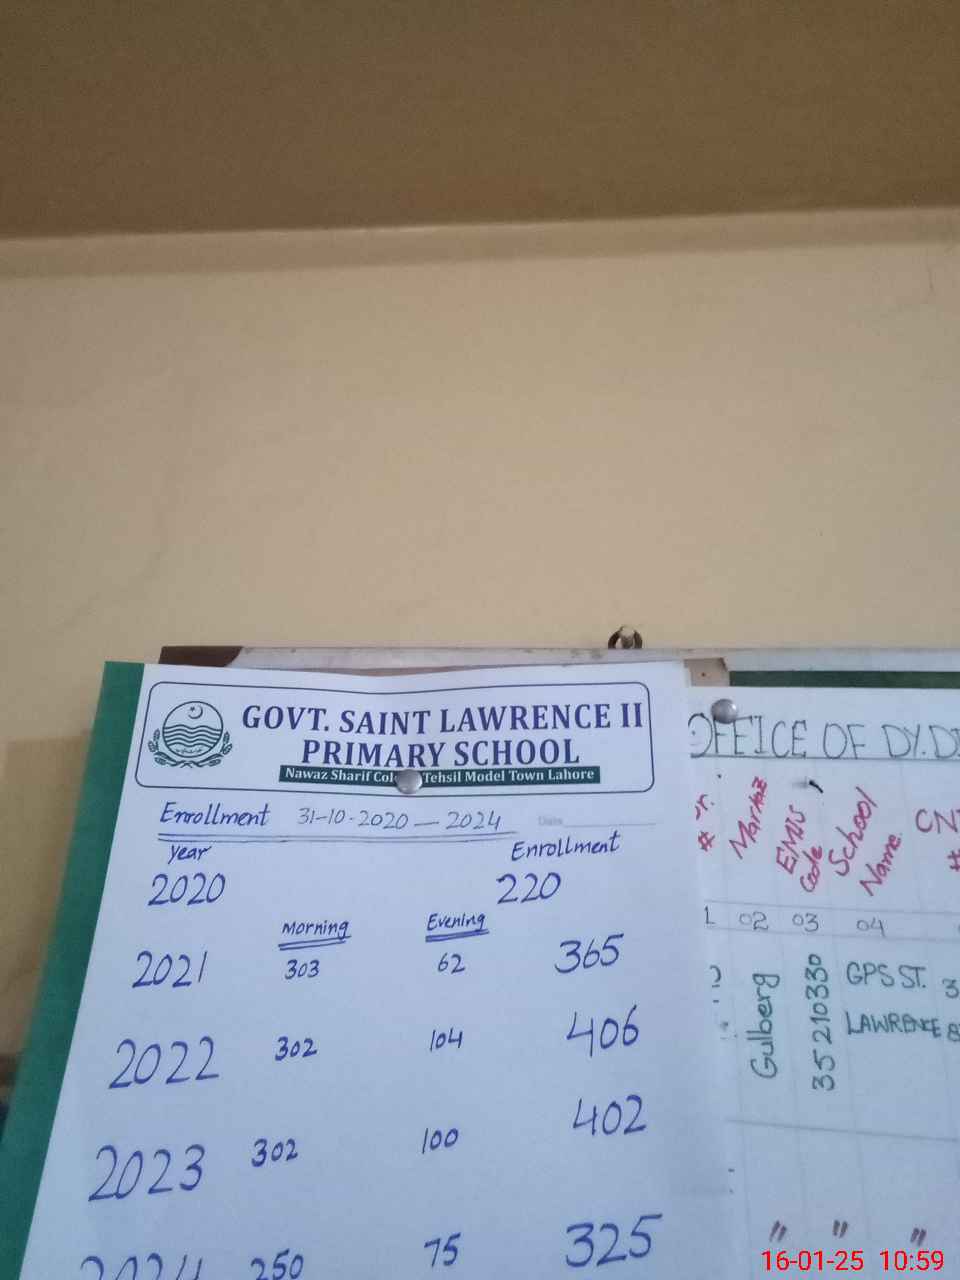 GOVT. SAINT LAWRENCE II
PRIMARY SCHOOL
Nawaz Sharif Tehsil Model Town Lahore
Enrollment 31-10-2020 — 2024 Date
Year Enrollment
2020 220
Morning Evening
2021 303 62 365
2022 302 104 406
2023 302 100 402
2024 250 75 325
OFFICE OF DY.
#
Markaz
EMIS Code
School Name
#
1 02 03 04
Gulberg
35210330
GPS ST. 3
LAWRENCE 8
" " "
16-01-25 10:59